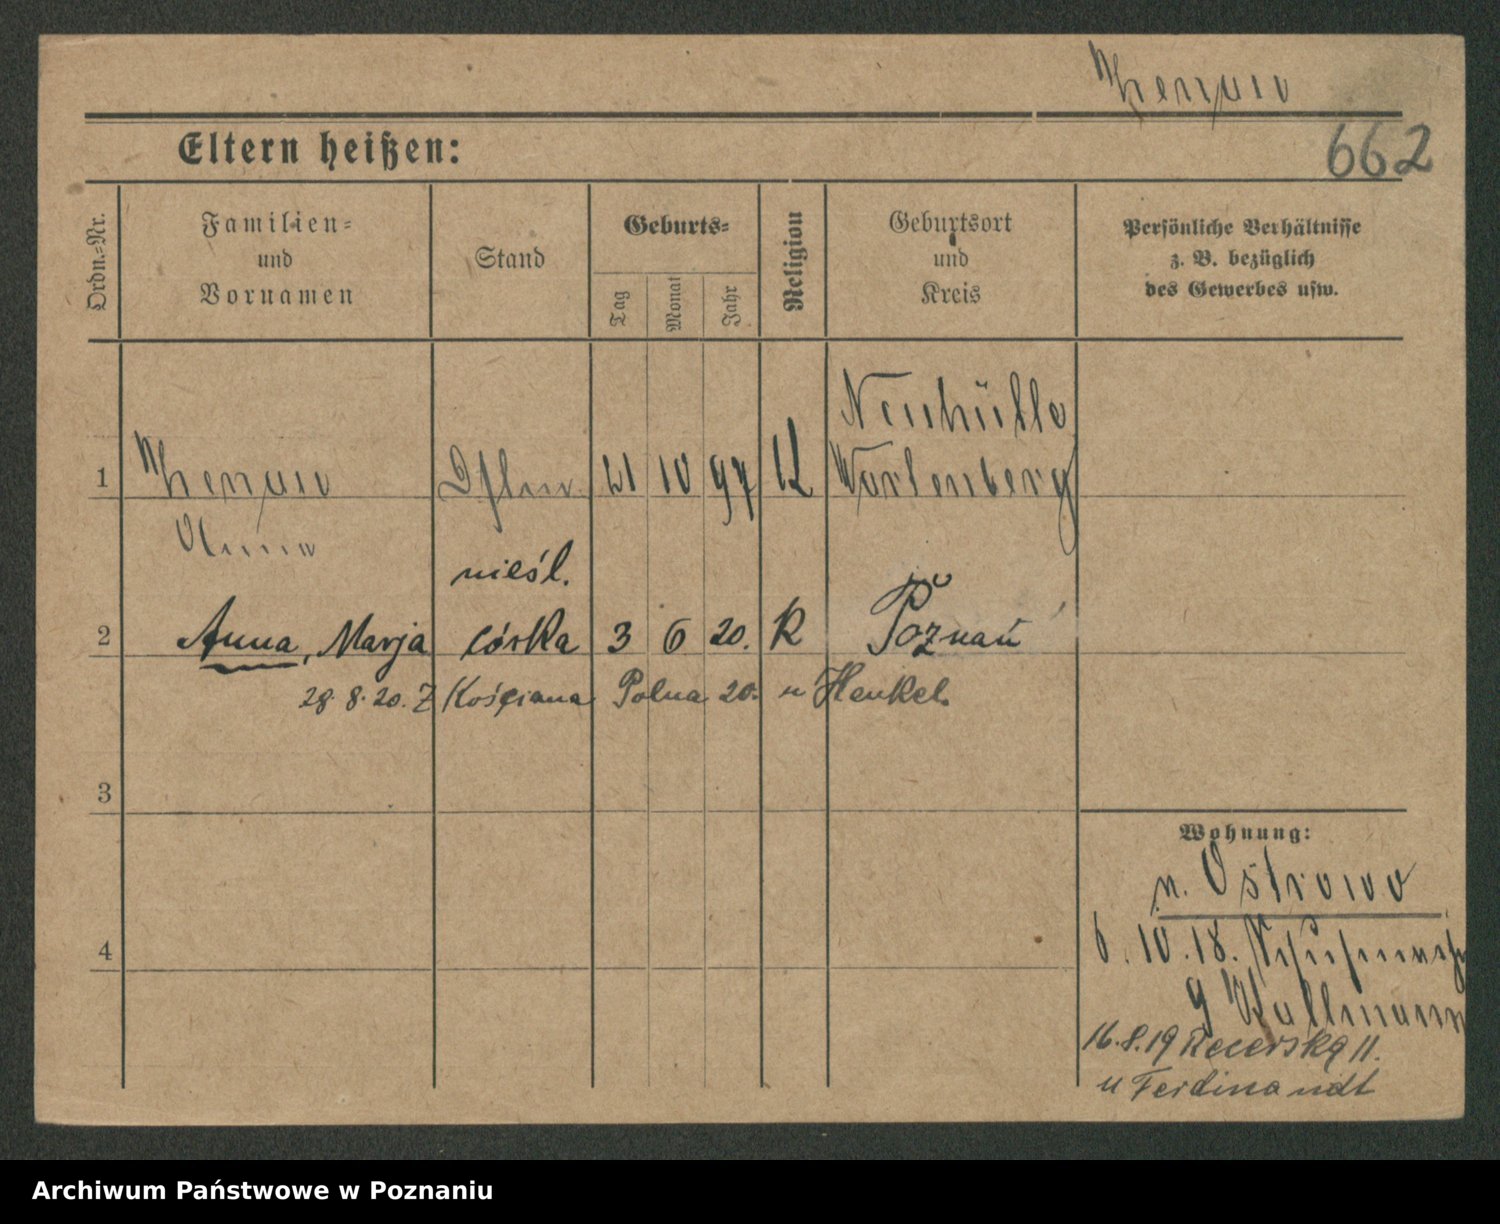 662
Eltern heißen:
Ordn.=Nr.
Familien=
und
Vornamen
Stand
Geburts=
Tag
Monat
Jahr
Religion
Geburtsort
und
Kreis
Persönliche Verhältnisse
z. B. bezüglich
des Gewerbes usw.
Neuhütte
1 21 10 97 K Wartenberg
Anna
nieśl.
2 Anna, Marja córka 3 6 20. K Poznań
28.8.20. Z Kościana Polna 20. u Henkel.
3
Wohnung:
n. Ostrowo
4
6.10.18.
9 Wallmann
16.8.19 11.
u Ferdinandt
Archiwum Państwowe w Poznaniu